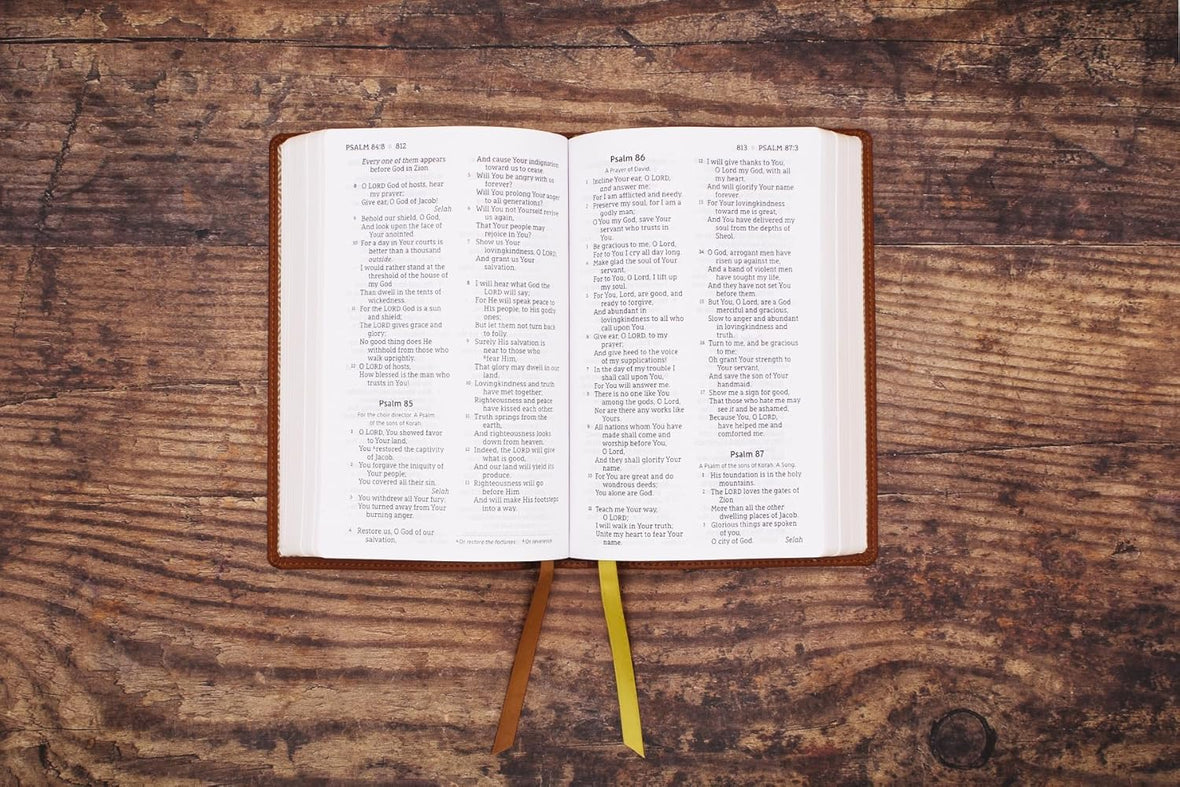 PSALM 84:8 ◦ 812
Every one of them appears
before God in Zion.
8 O LORD God of hosts, hear
my prayer;
Give ear, O God of Jacob!
Selah
9 Behold our shield, O God,
And look upon the face of
Your anointed.
10 For a day in Your courts is
better than a thousand
outside.
I would rather stand at the
threshold of the house of
my God
Than dwell in the tents of
wickedness.
11 For the LORD God is a sun
and shield;
The LORD gives grace and
glory;
No good thing does He
withhold from those who
walk uprightly.
12 O LORD of hosts,
How blessed is the man who
trusts in You!
Psalm 85
For the choir director. A Psalm
of the sons of Korah.
1 O LORD, You showed favor
to Your land,
You ᵃrestored the captivity
of Jacob.
2 You forgave the iniquity of
Your people;
You covered all their sin.
Selah
3 You withdrew all Your fury;
You turned away from Your
burning anger.
4 Restore us, O God of our
salvation,
And cause Your indignation
toward us to cease.
5 Will You be angry with us
forever?
Will You prolong Your anger
to all generations?
6 Will You not Yourself revive
us again,
That Your people may
rejoice in You?
7 Show us Your
lovingkindness, O LORD,
And grant us Your
salvation.
8 I will hear what God the
LORD will say;
For He will speak peace to
His people, to His godly
ones;
But let them not turn back
to folly.
9 Surely His salvation is
near to those who
ᵇfear Him,
That glory may dwell in our
land.
10 Lovingkindness and truth
have met together;
Righteousness and peace
have kissed each other.
11 Truth springs from the
earth,
And righteousness looks
down from heaven.
12 Indeed, the LORD will give
what is good,
And our land will yield its
produce.
13 Righteousness will go
before Him
And will make His footsteps
into a way.
ᵃOr restore the fortunes ᵇOr reverence
813 ◦ PSALM 87:3
Psalm 86
A Prayer of David.
1 Incline Your ear, O LORD,
and answer me;
For I am afflicted and needy.
2 Preserve my soul, for I am a
godly man;
O You my God, save Your
servant who trusts in
You.
3 Be gracious to me, O Lord,
For to You I cry all day long.
4 Make glad the soul of Your
servant,
For to You, O Lord, I lift up
my soul.
5 For You, Lord, are good, and
ready to forgive,
And abundant in
lovingkindness to all who
call upon You.
6 Give ear, O LORD, to my
prayer;
And give heed to the voice
of my supplications!
7 In the day of my trouble I
shall call upon You,
For You will answer me.
8 There is no one like You
among the gods, O Lord,
Nor are there any works like
Yours.
9 All nations whom You have
made shall come and
worship before You,
O Lord,
And they shall glorify Your
name.
10 For You are great and do
wondrous deeds;
You alone are God.
11 Teach me Your way,
O LORD;
I will walk in Your truth;
Unite my heart to fear Your
name.
12 I will give thanks to You,
O Lord my God, with all
my heart,
And will glorify Your name
forever.
13 For Your lovingkindness
toward me is great,
And You have delivered my
soul from the depths of
Sheol.
14 O God, arrogant men have
risen up against me,
And a band of violent men
have sought my life,
And they have not set You
before them.
15 But You, O Lord, are a God
merciful and gracious,
Slow to anger and abundant
in lovingkindness and
truth.
16 Turn to me, and be gracious
to me;
Oh grant Your strength to
Your servant,
And save the son of Your
handmaid.
17 Show me a sign for good,
That those who hate me may
see it and be ashamed,
Because You, O LORD,
have helped me and
comforted me.
Psalm 87
A Psalm of the sons of Korah. A Song.
1 His foundation is in the holy
mountains.
2 The LORD loves the gates of
Zion
More than all the other
dwelling places of Jacob.
3 Glorious things are spoken
of you,
O city of God. Selah